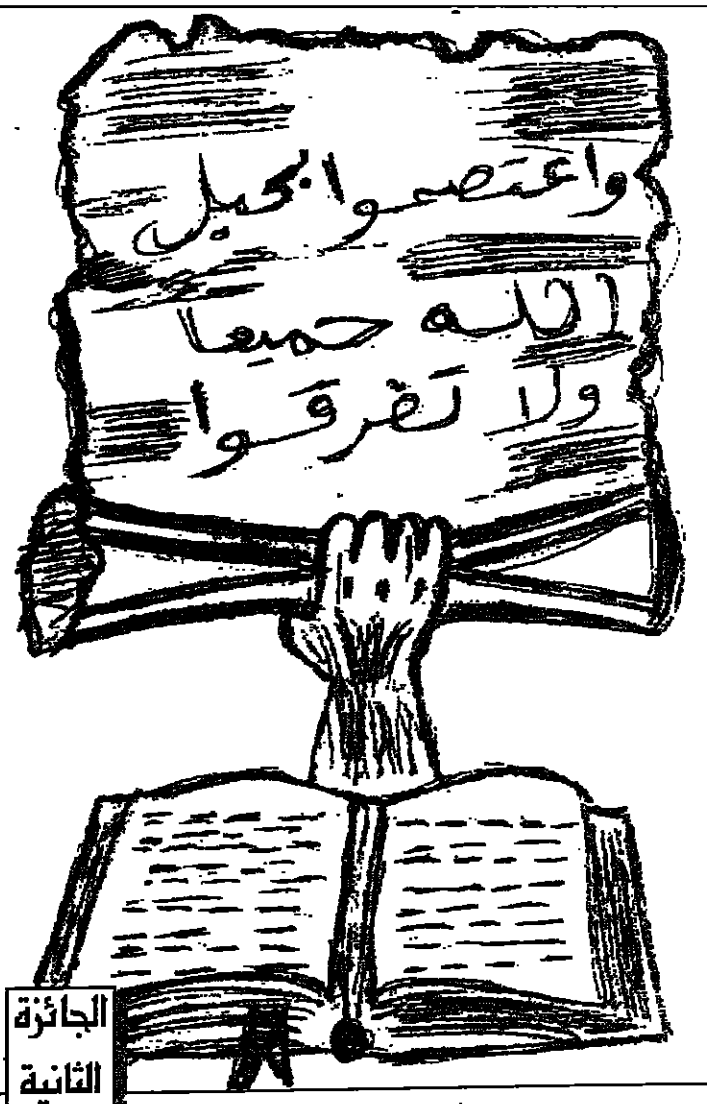 واعتصموا بحبل
الله جميعا
ولا تفرقوا
الجائزة
الثانية